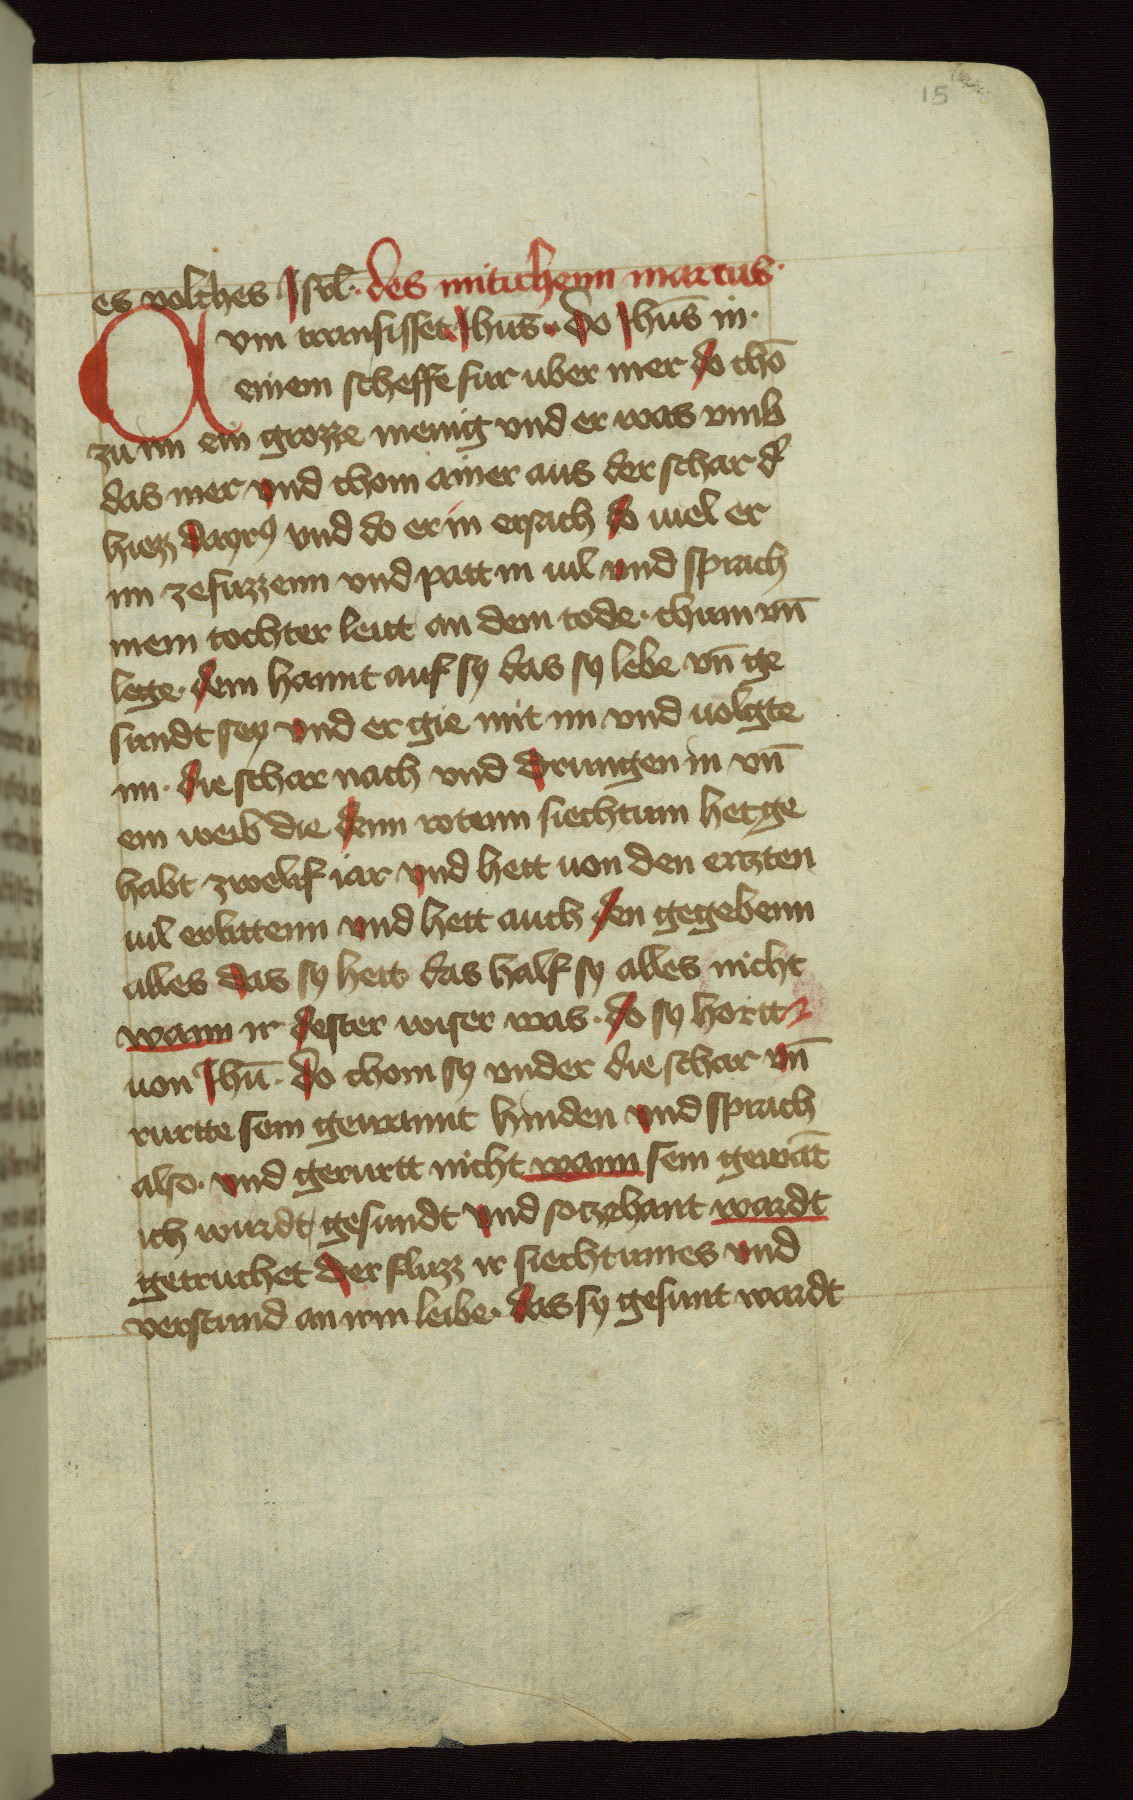 15
es volches Isrl̄. des mitichenn marcus.
Cum transisset Jhūs. do Jhūs in.
einem scheffe fur uber mer do chō
zu im ein grozze menig vnd er was vmb
das mer vnd chom ainer aus der schar d͛
hiezz Jayrꝰ vnd do er in ersach do viel er
im ze fuzzenn vnd patt in uil vnd sprach
mein tochter leitt an dem tode. chum vn̄
lege. dein hannt auf sy das sy lebe vn̄ ge
sundt sey vnd er gie mit im vnd uolgte
im. die schar nach vnd drungen in vn̄
ein weib die denn rotenn siechtum het ge
habt zwelif iar vnd hett uon den ertzten
uil erlittenn vnd hett auch den gegebenn
alles das sy hett das half sy alles nicht
wann ir dester wiser was. do sy hortt
uon Jhū. do chom sy vnder die schar vn̄
rurtte sein gewannt hinden vnd sprach
also. vnd gerurtt nicht wann sein gewāt
ich wurdt gesundt vnd sotzehant wardt
getruchet der fluzz ir siechtumes vnd
verstund an irm leibe. das sy gesunt wardt